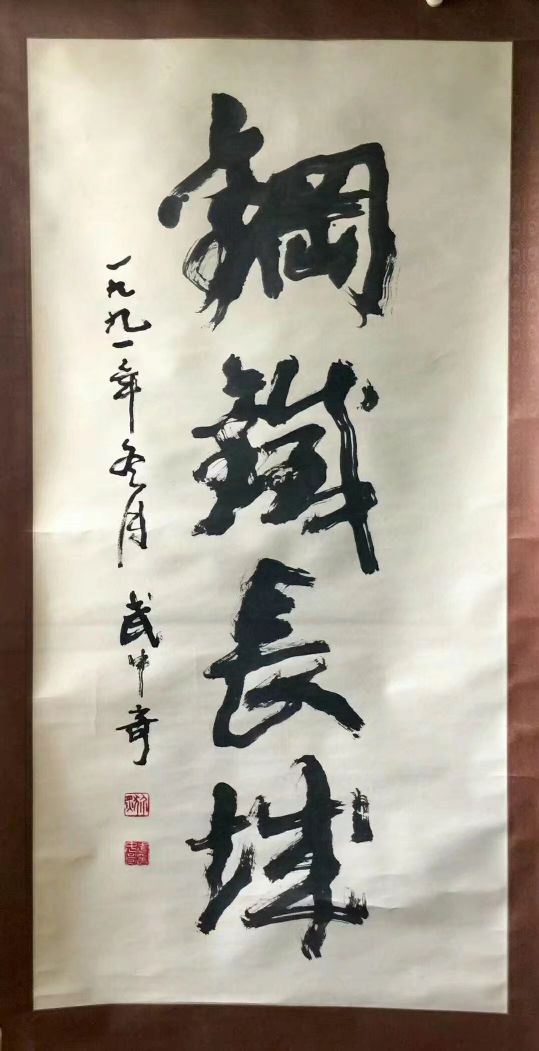 鋼鐵長城
一九九一年冬月 武中奇